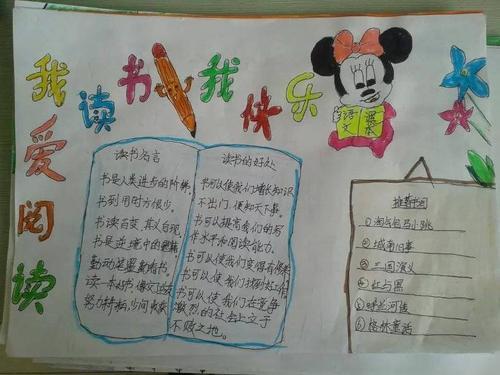 我读书我快乐
我爱阅读
语文 课本
读书名言
书是人类进步的阶梯。
书到用时方恨少。
读书百变，其义自现。
书是逆境中的
勤动
读一本好书，像交了
努力拼搏，少问收获
读书的好处
书可以使我们增长知识
不出门，便知天下事。
书可以提高我们的写
作水平和阅读能力。
书可以使我们变得有修养
书可以使我们找到好工作
书可以使我们在竞争
激烈的社会上立于
不败之地。
推荐书目
①淘气包马小跳
②城南旧事
③三国演义
④红与黑
⑤呼兰河传
⑥格林童话